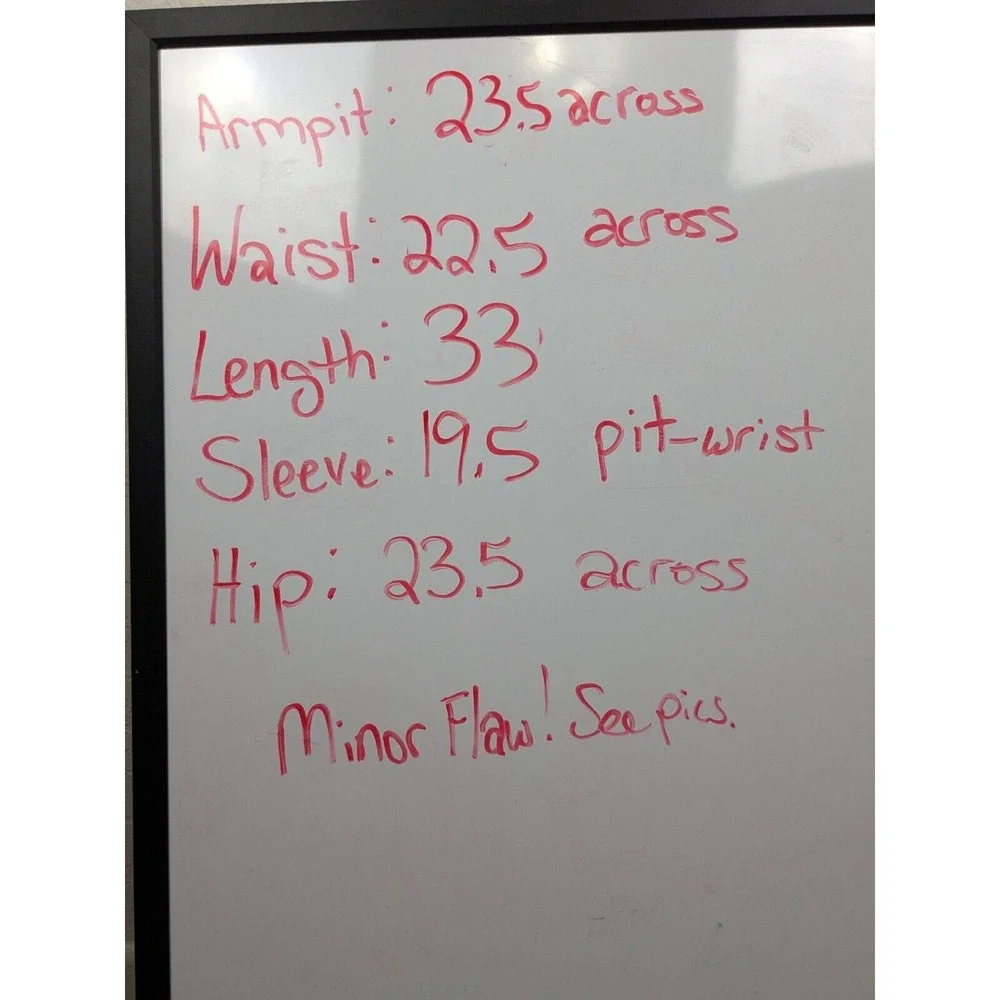 Armpit: 23.5 across
Waist: 22.5 across
Length: 33
Sleeve: 19.5 pit-wrist
Hip: 23.5 across
Minor Flaw! See pics.